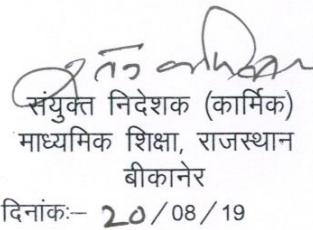 संयुक्त निदेशक (कार्मिक)
माध्यमिक शिक्षा, राजस्थान
बीकानेर
दिनांकः– 20/08/19